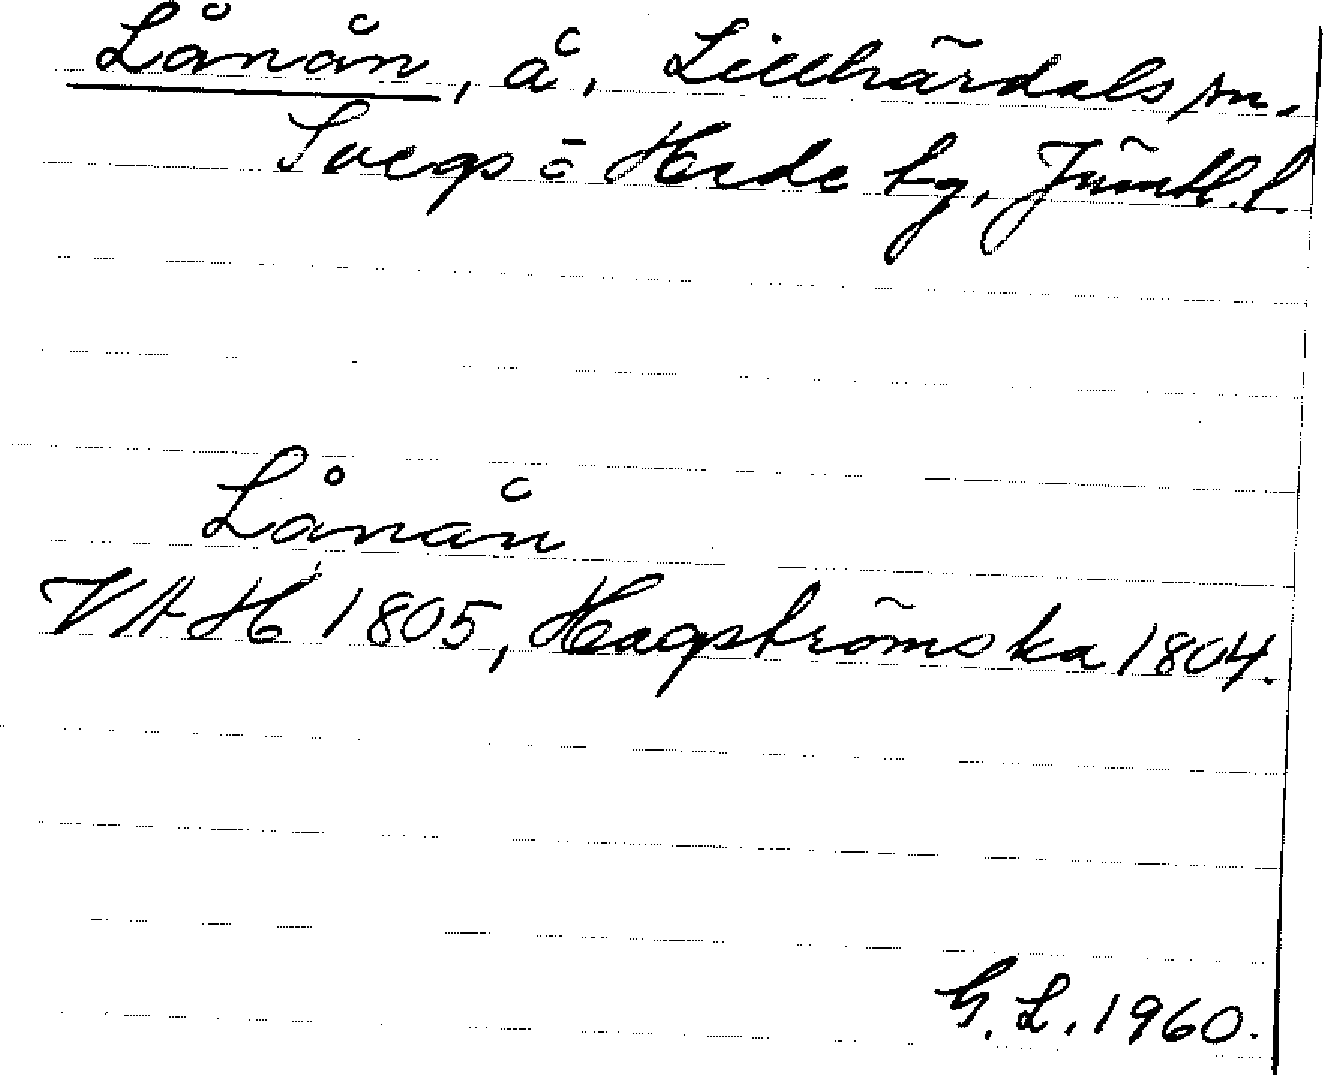 Lånån, å, Lillhärdals sn.
Svegs o Hede tg, Jämtl. l.
Lånån
VAH 1805, Hagströmska 1804.
G. L. 1960.